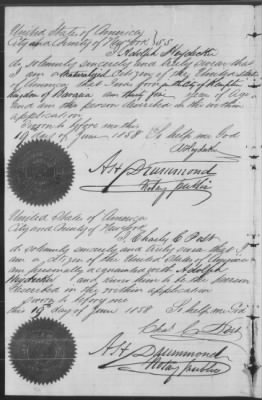 United States of America
City and County of New York } SS
I, Adolph Heydecke
do solemnly sincerely and truly swear that
I am a naturalized Citizen of the United States
of America that I was born in the City of
Kingdom of Bavaria am years of age
and am the person described in the within
application
Sworn to before me this
19 day of June 1858 So help me God
AHeydecke
A H Drummond
Notary public
United States of America
City and County of New York
I, Charles C Post
do solemnly sincerely and truly swear that I
am a citizen of the United States of America
am personally acquainted with Adolph
Heydecke and know him to be the person
described in the within application
Sworn to before me
this 19th day of June 1858 So help me God
Chas C Post
A H Drummond
Notary public